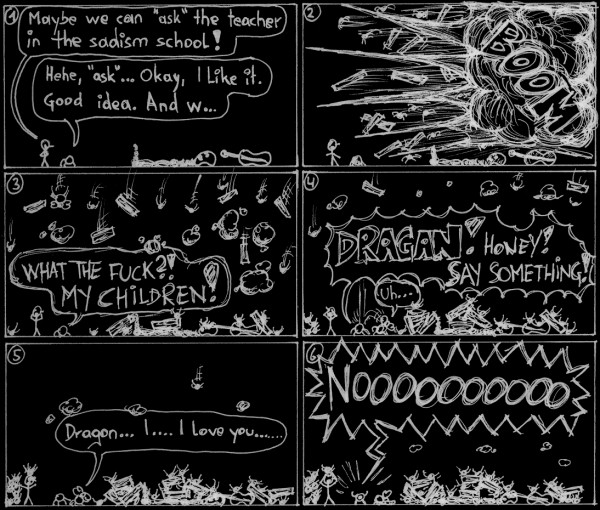 1
Maybe we can "ask" the teacher
in the sadism school!
Hehe, "ask"... Okay, I Like it.
Good idea. And w...
2
BOOM
3
WHAT THE FUCK?!
MY CHILDREN!
4
DRAGAN! HONEY!
SAY SOMETHING!
Uh...
5
Dragan... I.... I love you.......
6
NOOOOOOOOOOO